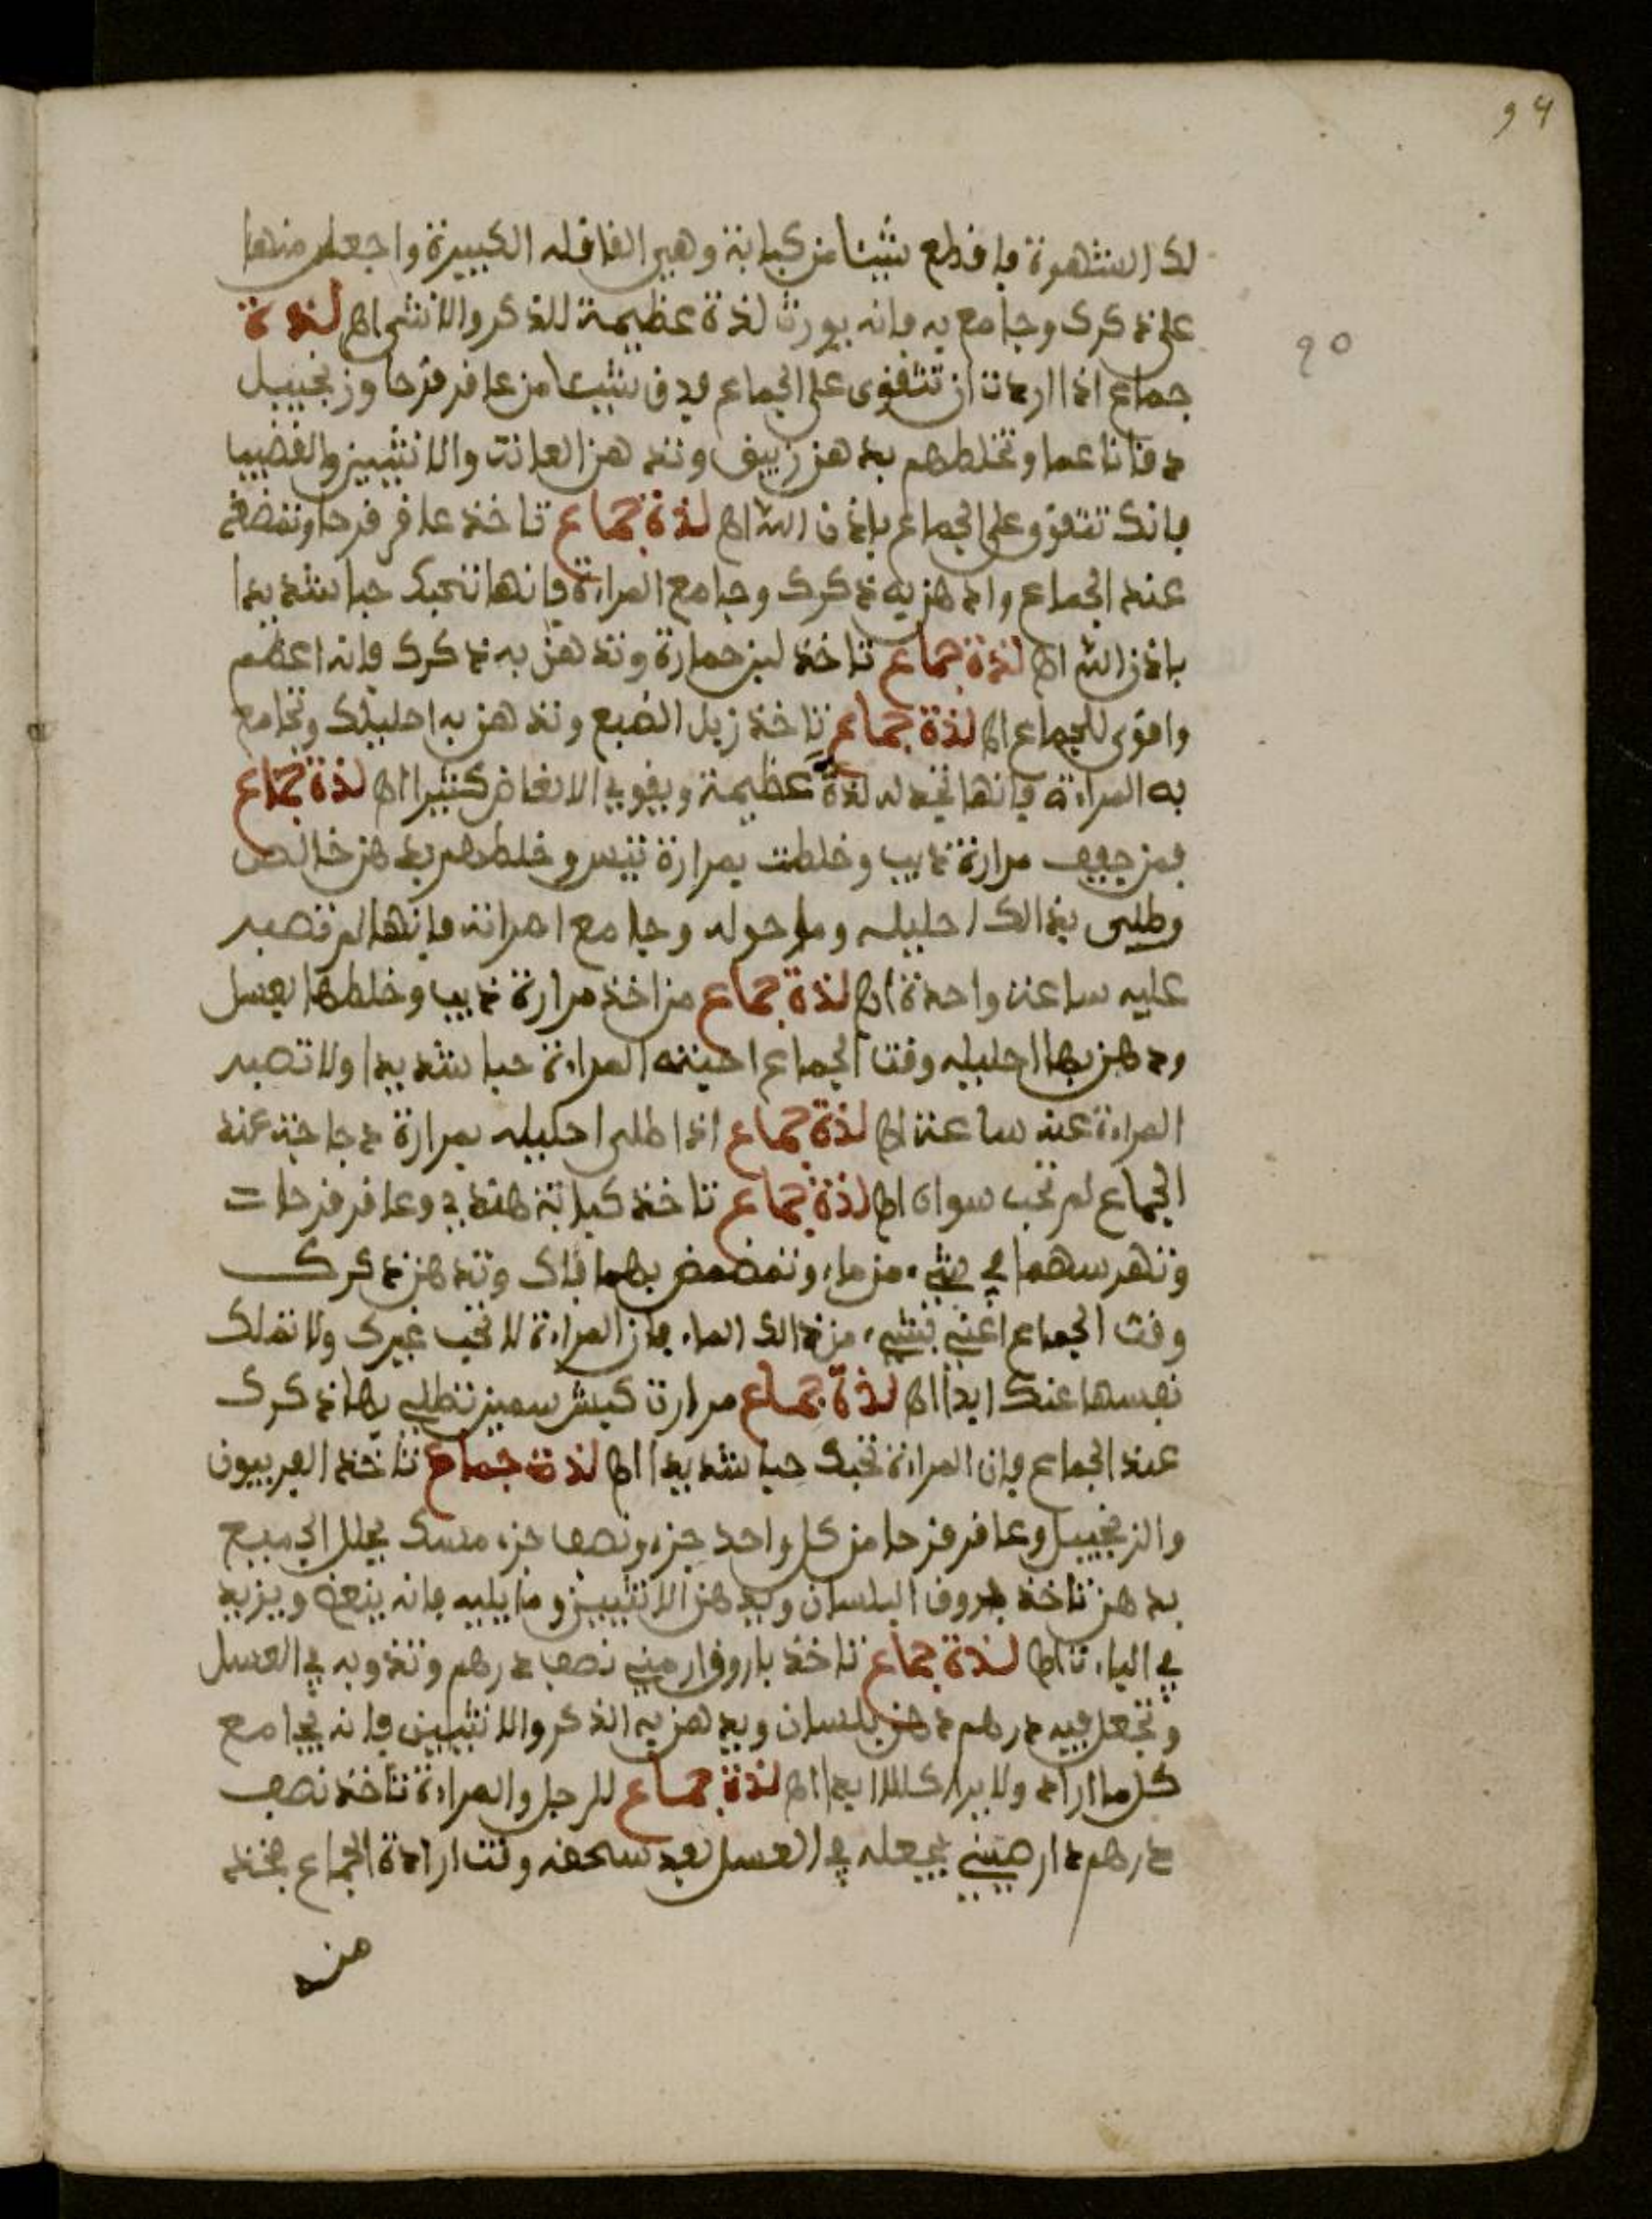 94
90
لك الشهوة فاقطع شيئا من كبابة وهي القاقله الكبيرة واجعل منها
على ذكرك وجامع به فانه يورث لذة عظيمة للذكر والانثى اه لذة
جماع اذا اردت ان تتقوى على الجماع فدق شيئا من عاقر قرحا وزنجبيل
دقا ناعما وتخلطهم بدهن زيبق وتدهن العانت والانثيين والقضيب
فانك تتقوو على الجماع باذن الله اه لذة جماع تاخذ عاقر قرحا وتمضغه
عند الجماع وادهن به ذكرك وجامع المراءة فانها تحبك حبا شديدا
باذن الله اه لذة جماع تاخذ لبن حمارة وتدهن به ذكرك فانه اعظم
واقوى للجماع اه لذة جماع تاخذ زبل الضبع وتدهن به احليلك وتجامع
به المراءة فانها تجد له لذة عظيمة ويقوي الانعاض كثيرا اه لذة جماع
فمن جفف مرارة ذيب وخلطت بمرارة تيس وخلطهم بدهن خالص
وطلى بذالك احليله وما حوله وجامع امراته فانها لم تصبر
عليه ساعة واحدة اه لذة جماع من اخذ مرارة ذيب وخلطها بعسل
ودهن بها احليله وقت الجماع احبته المراءة حبا شديدا ولا تصبر
المراءة عنه ساعة اه لذة جماع اذا طلى احليله بمرارة دجاجة عند
الجماع لم تحب سواه اه لذة جماع تاخذ كبابة هندي وعاقر قرحات
وتهرسهما في شيء من ماء وتمضمض بهما فاك وتدهن ذكرك
وقت الجماع اغني بشيء من ذالك الماء فان المراءة لا تحب غيرك ولا تملك
نفسها عنك ابدا اه لذة جماع مرارت كبش سمين تطلي بها ذكرك
عند الجماع فان المراءة تحبك حبا شديدا اه لذت جماع تاخذ الفربيون
والزنجبيل وعاقر قرحا من كل واحد جزء ونصف جزء مسك يحلل الجميع
بدهن تاخذ بدهن البلسان ويدهن الانثيين وما يليه فانه ينعض ويزيد
في الباءت اه لذة جماع تاخذ باروق ارميني نصف درهم وتذوبه في العسل
وتجعل فيه درهم دهن بلسان ويدهن به الذكر والانثيين فانه يجامع
كل ما اراد ولا يرا كللا ابدا اه لذة جماع للرجل والمراءة تاخذ نصف
درهم دار صيني يجعله في العسل بعد سحقه وقت ارادة الجماع فخذ
من